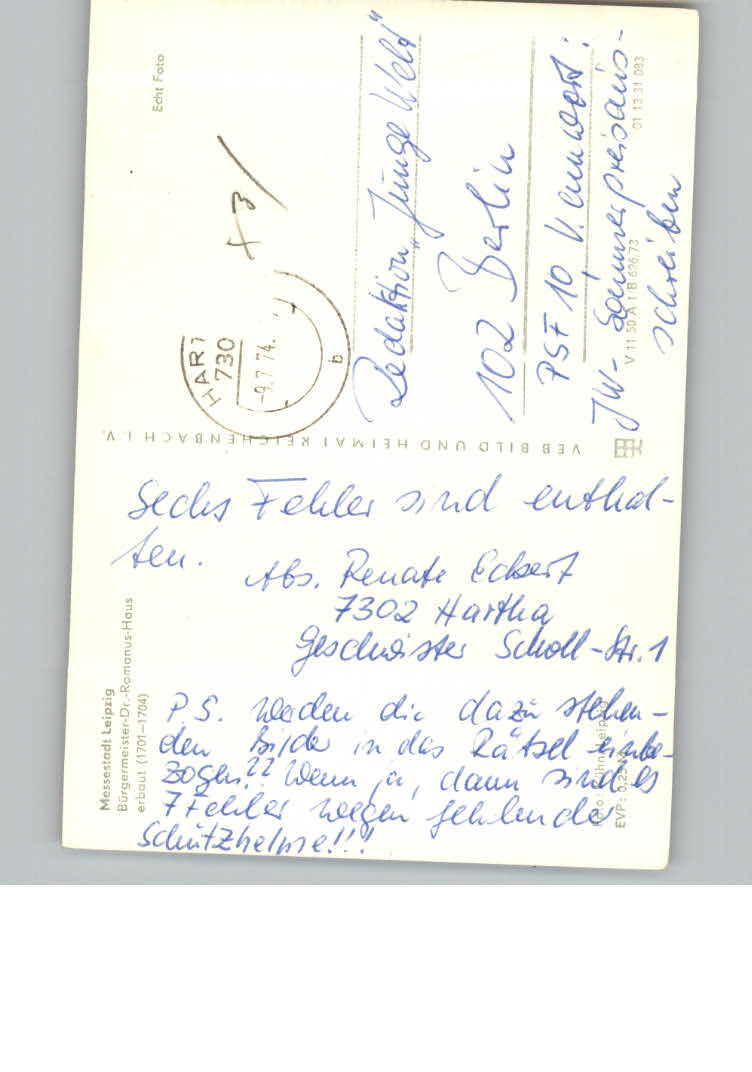 Sechs Fehler sind enthal-
ten.
Abs. Renate Eckert
7302 Hartha
Geschwister Scholl-Str. 1
P.S. Werden die dazu stehen-
den Bilder in das Rätsel einbe-
zogen?? Wenn ja, dann sind es
7 Fehler wegen fehlender
Schutzhelme!!!
Redaktion „Junge Welt"
102 Berlin
PSF 10 Kennwort:
JW- Sommerpreisaus-
schreiben
+3/
HART
730
-9.7.74.
b
Echt Foto
VEB BILD UND HEIMAT REICHENBACH I. V.
V 11 50 A 1/B 626/73
01 13 31 083
Messestadt Leipzig
Bürgermeister-Dr.-Romanus-Haus
erbaut (1701–1704)
Leipzig
EVP: